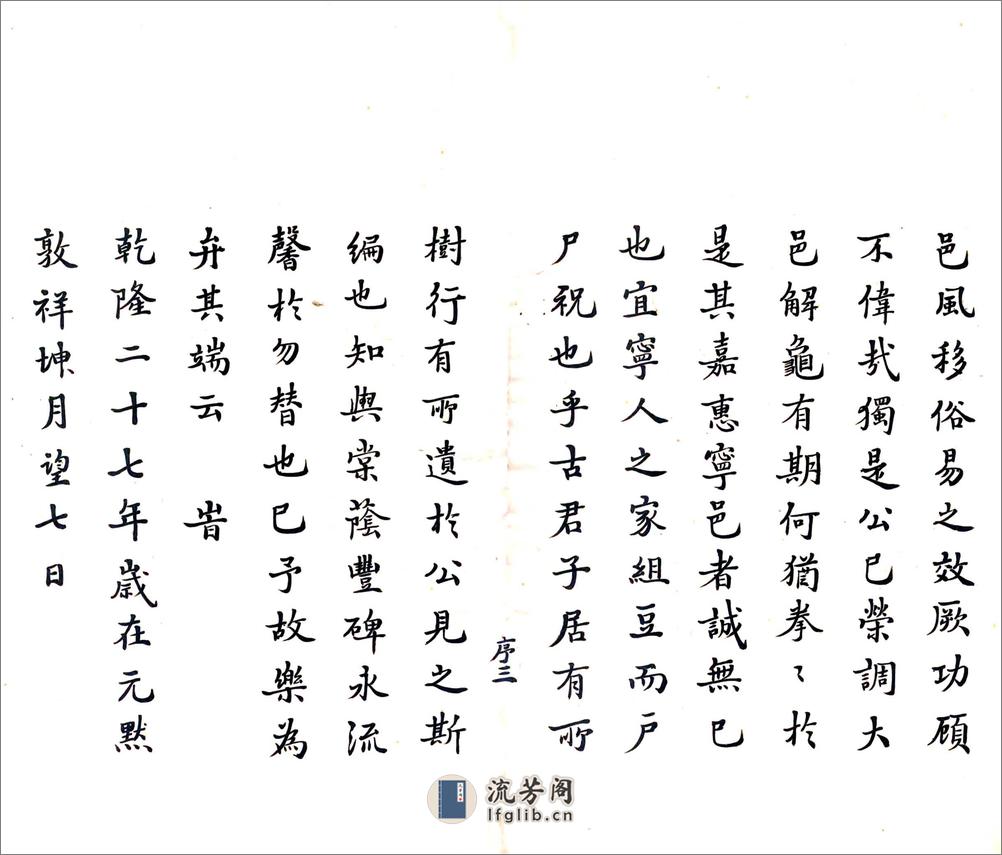 邑風移俗易之效厥功顧
不偉哉獨是公已榮調大
邑解龜有期何猶拳〻於
是其嘉惠寧邑者誠無已
也宜寧人之家組豆而戶
尸祝也乎古君子居有所
序三
樹行有所遺於公見之斯
編也知與棠蔭豐碑永流
馨於勿替也已予故樂為
弁其端云　旹
乾隆二十七年歲在元黓
敦祥坤月望七日
流芳阁
lfglib.cn